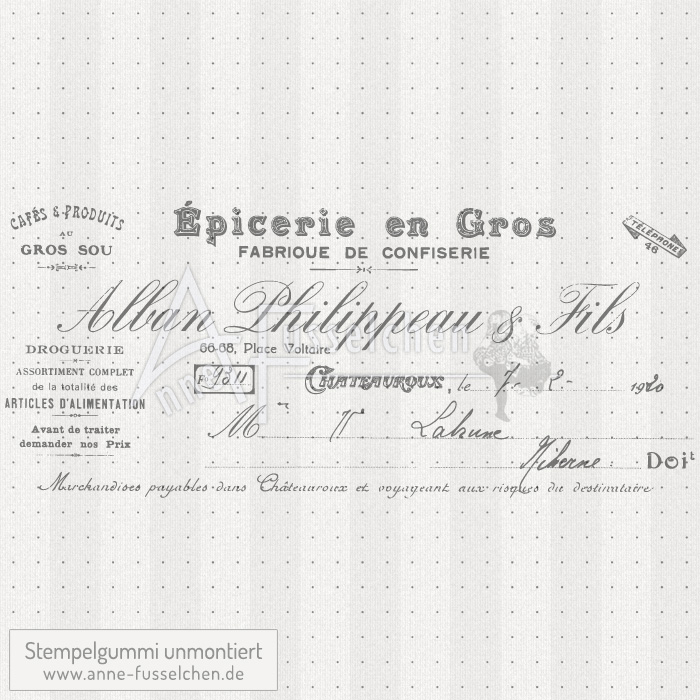 CAFÉS & PRODUITS
AU
GROS SOU
Épicerie en Gros
FABRIQUE DE CONFISERIE
TÉLÉPHONE
46
Alban Philippeau & Fils
66-68, Place Voltaire
DROGUERIE
ASSORTIMENT COMPLET
de la totalité des
ARTICLES D'ALIMENTATION
Avant de traiter
demander nos Prix
CHATEAUROUX, le 7 - 2 - 1920
M
Doit
Marchandises payables dans Châteauroux et voyageant aux risques du destinataire
Anne Fusselchen
Stempelgummi unmontiert
www.anne-fusselchen.de